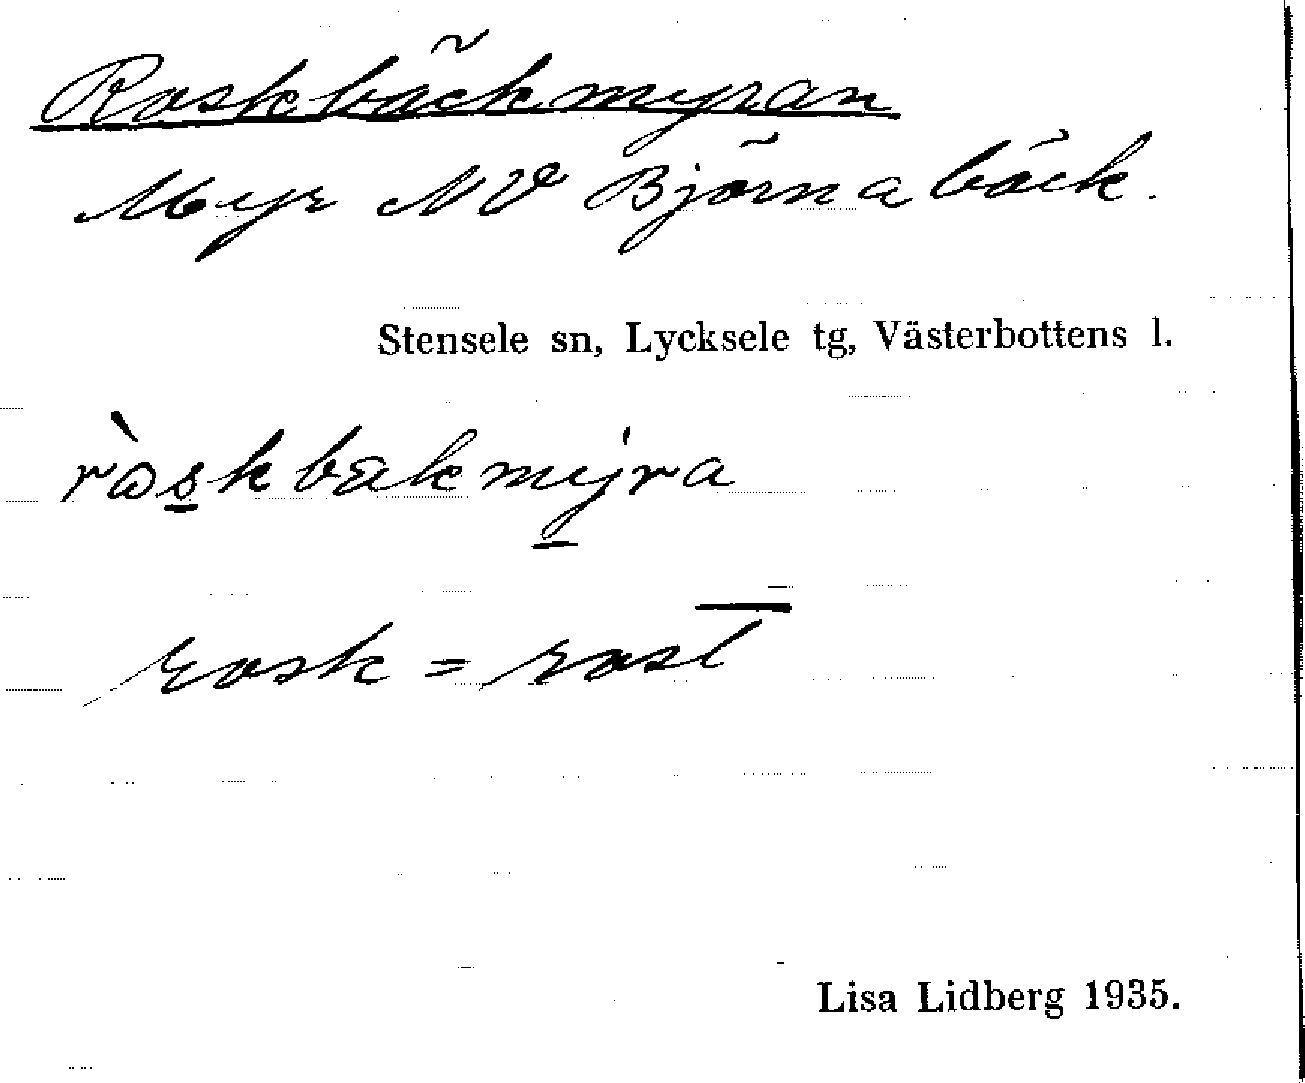 Roskbäckmyran
Myr NV Björnabäck.
Stensele sn, Lycksele tg, Västerbottens l.
ròskbækmýra
rosk = rost
Lisa Lidberg 1935.